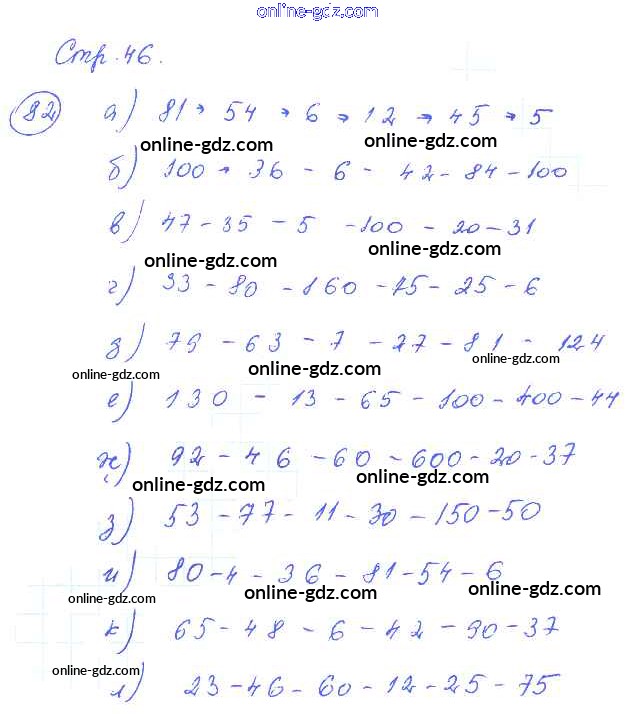 online-gdz.com
Стр. 46.
online-gdz.com
82 а) 81 → 54 → 6 → 12 → 45 → 5
online-gdz.com
online-gdz.com
б) 100 → 36 - 6 - 42 - 84 - 100
в) 47 - 35 - 5 - 100 - 20 - 31
online-gdz.com
online-gdz.com
г) 93 - 80 - 160 - 75 - 25 - 6
д) 79 - 63 - 7 - 27 - 81 - 124
online-gdz.com
online-gdz.com
online-gdz.com
е) 130 - 13 - 65 - 100 - 400 - 44
ж) 92 - 46 - 60 - 600 - 20 - 37
online-gdz.com
online-gdz.com
з) 53 - 77 - 11 - 30 - 150 - 50
и) 80 - 4 - 36 - 81 - 54 - 6
online-gdz.com
online-gdz.com
online-gdz.com
к) 65 - 48 - 6 - 42 - 90 - 37
online-gdz.com
online-gdz.com
л) 23 - 46 - 60 - 12 - 25 - 75